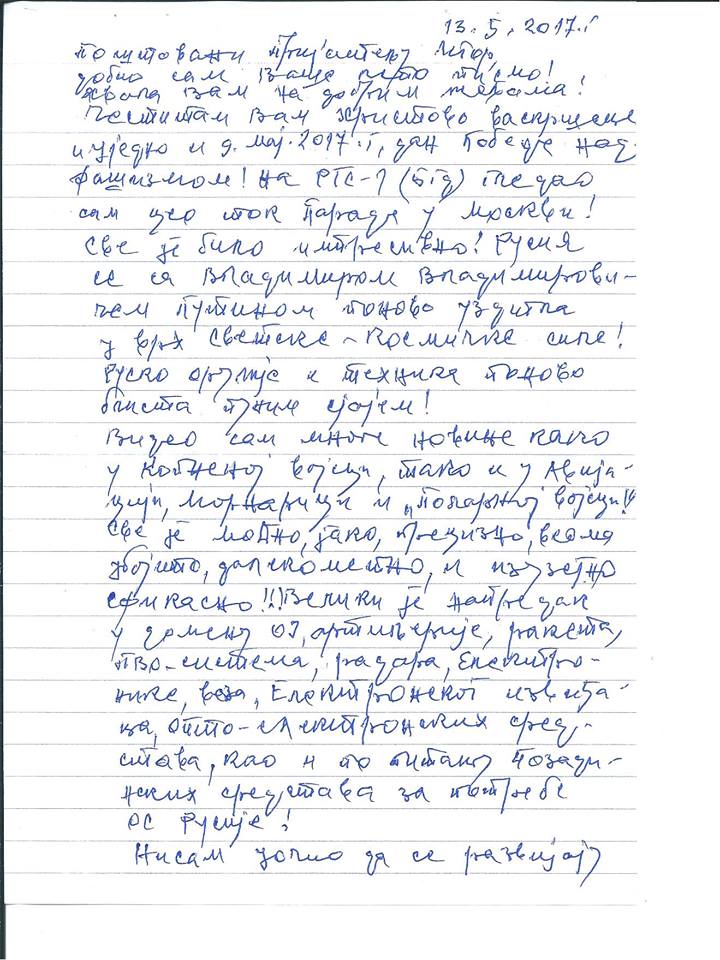 13.5.2017.г
Поштовани пријатељу Игор
добио сам Ваше писмо!
Хвала Вам на добрим жељама!
Честитам Вам Христово васкрсење
и уједно и 9. мај.2017.г, дан Победе над
фашизмом! На РТС-1 (Бгд) гледао
сам цео ток Параде у Москви!
Све је било импресивно! Русија
се са Владимиром Владимирови-
чем Путином поново уздигла
у врх Светске - Космичке силе!
Руско оружје и техника поново
блиста пуним сјајем!
Видео сам многе новине како
у Копненој војсци, тако и у Авија-
цији, Морнарици и „поларној војсци"!
Све је моћно, јако, прецизно, веома
убојито, далекометно, и изузетно
ефикасно!!! Велики је напредак
у домену ОЈ, артиљерије, ракета,
ПВО-система, радара, Електро-
нике, веза, Електронског извиђа-
ња, опто-електронских сред-
става, као и по питању Позади-
нских средстава за потребе
ОС Русије!
Нисам уочио да се развијају